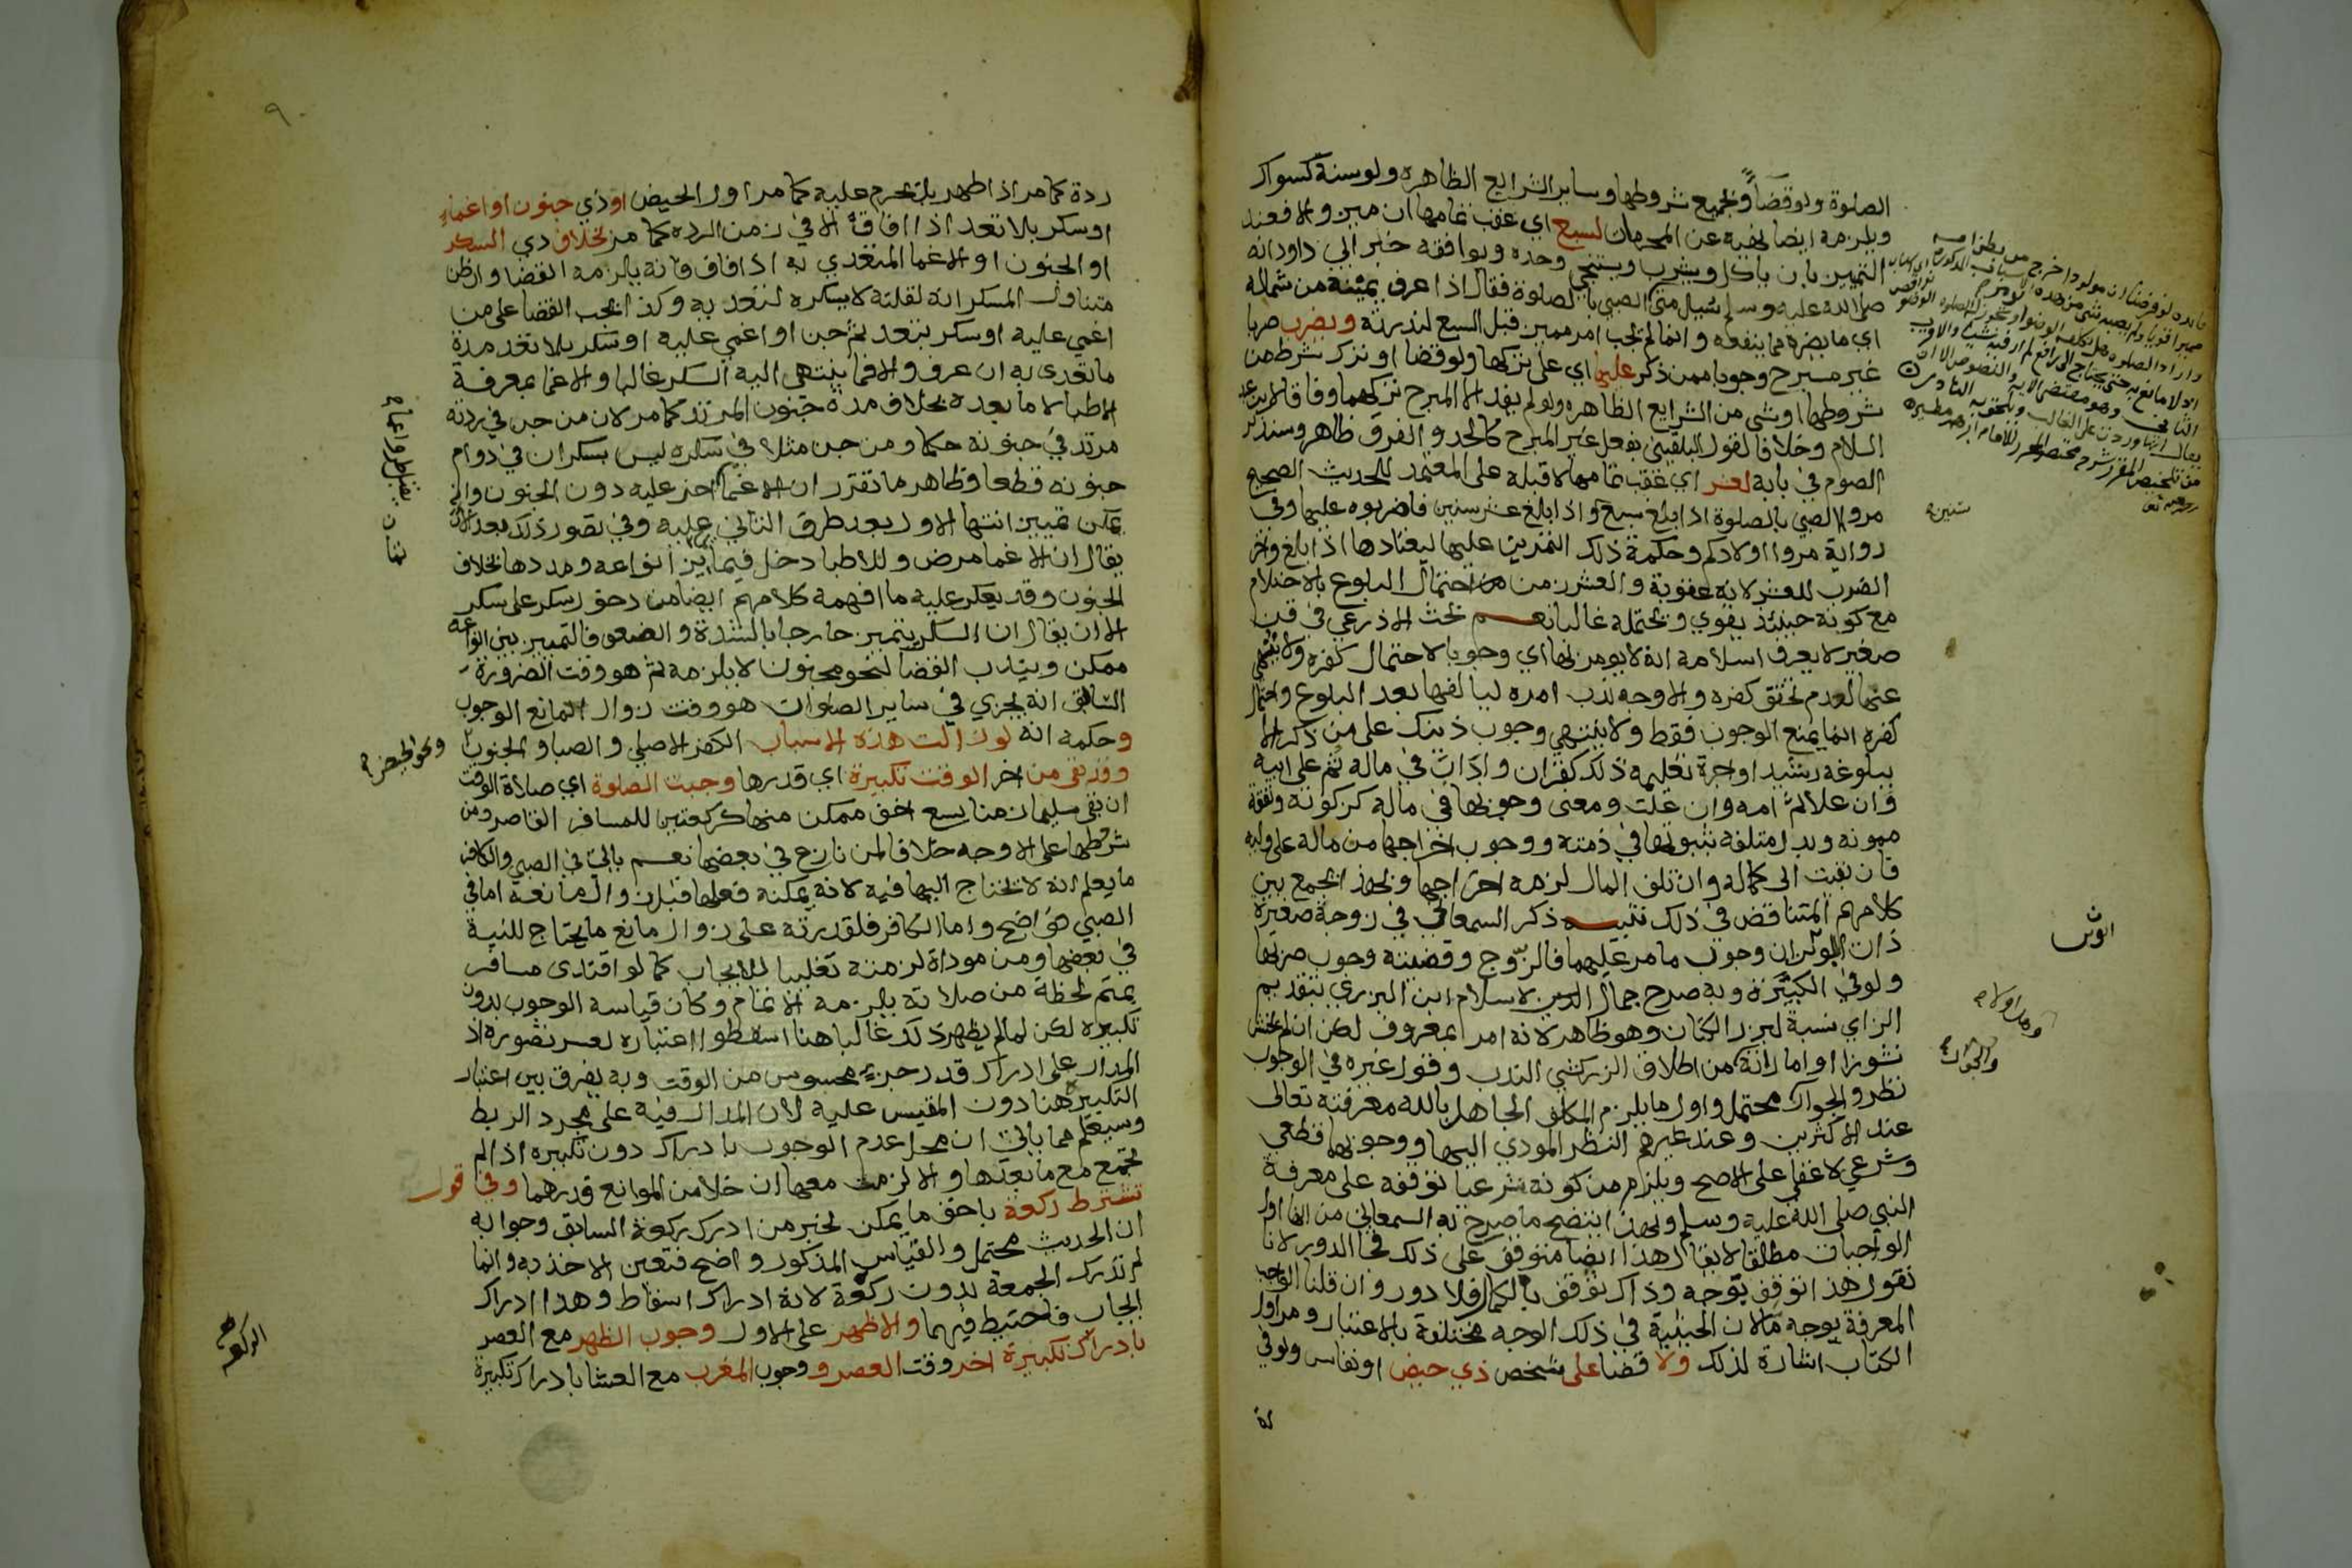 الصلوة ولو قضاً وبجميع شروطها وساير الشرايع الظاهره ولو سنة كسواك
ويلزمه ايضا نهيه عن المحرمات لسبع اي عقب تمامها ان ميز والا فعند
التمييز بان ياكل ويشرب ويستنجي وحده ويوافقه خبر ابي داود انه
صلى الله عليه وسلم سُيل متى الصبي بالصلوة فقال اذا عرف يمينه من شماله
اي ما يضره مما ينفعه وانما لم تجب امر مميز قبل السبع لندرته ويضرب ضربا
غير مبرح وجوبا ممن ذكر عليها اي على تركها ولو قضا او ترك شرط من
شروطها او شى من الشرايع الظاهره ولو لم يفد الا المبرح تركهما وفاقا لابن عبد
السلام وخلافا لقول البلقيني يفعل غير المبرح كالحد والفرق ظاهر وسنذكر
الصوم في بابه لعشر اي عقب تمامها لا قبله على المعتمد للحديث الصحيح
مروا الصبي بالصلوة اذا بلغ سبع واذا بلغ عشر سنين فاضربوه عليها وفي
رواية مروا اولادكم وحكمة ذلك التمرين عليها ليعتادها اذا بلغ واخر
الضرب للعشر لانه عقوبة والعشر زمن احتمال البلوغ بالاحتلام
مع كونه حينئذ يقوي ويحتمله غالبا نعم بحث الاذرعي في قن
صغير لا يعرف اسلامه انه لا يومر بها اي وجوبا لاحتمال كفره ولا ينهى
عنها لعدم تحقق كفره والاوجه ندب امره ليالفها بعد البلوغ واحتمال
كفره انما يمنع الوجوب فقط ولا ينتهي وجوب ذينك على من ذكر الا
ببلوغه رشيدا واجرة تعليمه ذلك كقران واداب في ماله ثم على ابيه
وان علا ثم امه وان علت ومعنى وجوبها في ماله كزكوته ونفقة
ممونه وبدل متلفه ثبوتها في ذمته ووجوب اخراجها من ماله على وليه
فان بقيت الى كماله وان تلف المال لزمه اخراجها وبهذا يجمع بين
كلامهم المتناقض في ذلك تنبيه ذكر السمعاني في زوجة صغيرة
ذات ابوين ان وجوب ما مر عليهما فالزوج وقضيته وجوب ضربها
ولو في الكبيرة وبه صرح جمال الاسلام ابن البزري بتقديم
الزاي نسبة لبزر الكتان وهو ظاهر لانه امر بمعروف لكن ان لم يخش
نشوزا او امارته من اطلاق الزركشي الندب وقول غيره في الوجوب
نظر والجواز محتمل واول ما يلزم المكلف الجاهل بالله معرفته تعالى
عند الاكثرين وعند غيرهم النظر المودي اليها ووجوبها قطعي
وشرعي لا عقلي على الاصح ويلزم من كونه شرعيا توقفه على معرفة
النبي صلى الله عليه وسلم وبهذا يتضح ما صرح به السمعاني من انها اول
الواجبات مطلقا لا يقال هذا ايضا متوقف على ذلك فجا الدور لانا
نقول هذا توقف بوجه وذاك توقف بالكمال فلا دور وان قلنا الواجب
المعرفة بوجه ما لان الحيثية في ذلك الوجه مختلفة بالاعتبار ومر اول
الكتاب اشارة لذلك ولا قضا على شخص ذي حيض او نفاس ولو في
سنين
ردة كما مر اذا طهر بل يحرم عليه كما مر اول الحيض او ذي جنون او اغماء
او سكر بلا تعد اذا افاق الا في زمن الرده كما مر بخلاف ذي السكر
او الجنون او الاغما المتعدي به اذا افاق فانه يلزمه القضا وان ظن
متناول المسكر انه لقلته لا يسكره لتعديه وكذا يجب القضا على من
اغمي عليه او سكر بتعد ثم جن او اغمي عليه او سكر بلا تعد مدة
ما تعدى به ان عرف والا فما ينتهى اليه السكر غالبا والاغما بمعرفة
الاطبا لا ما بعده بخلاف مدة جنون المرتد كما مر لان من جن في ردته
مرتد في جنونه حكما ومن جن مثلا في سكره ليس بسكران في دوام
جنونه قطعا وظاهر ما تقرر ان الاغما عليه دون الجنون وانه
يمكن تمييز انتها الاول بعد طرق الثاني عليه وفي تصور ذلك بعد الا ان
يقال ان الاغما مرض وللاطبا دخل في تمايز انواعه ومددها بخلاف
الجنون وقد يعكر عليه ما افهمه كلامهم ايضا من دخول سكر على سكر
الا ان يقال ان السكر يتميز خارجا بالشدة والضعف فالتمييز بين انواعه
ممكن ويندب القضا لنحو مجنون لا يلزمه ثم هو وقت الضرورة
السابق انه يجزي في ساير الصلوات هو وقت زوال المانع الوجوب
وحكمه انه لو زالت هذه الاسباب الكفر الاصلي والصبا والجنون
وقد بقى من اخر الوقت تكبيرة اي قدرها وجبت الصلوة اي صلاة الوقت
ان بقى سليما زمنا يسع اخف ممكن منها كركعتين للمسافر القاصر ومن
شروطها على الاوجه خلافا لمن نازع في بعضها نعم ياتي في الصبي والكافر
ما يعلم انه لا يحتاج اليها فيه لانه يمكنه فعلها قبل زوال مانعه اما في
الصبي فواضح واما الكافر فلقدرته على زوال مانع ما يحتاج للنية
في بعضها ومن موداة لزمته تغليبا للايجاب كما لو اقتدى مسافر
بمتم لحظة من صلاته يلزمه الاتمام وكان قياسه الوجوب بدون
تكبيره لكن لما لم يظهر ذلك غالبا هنا اسقطوا اعتباره لعسر تصوره اذ
المدار على ادراك قدر جزء محسوس من الوقت وبه يفرق بين اعتبار
التكبيره هنا دون المقيس عليه لان المدار فيه على مجرد الربط
وسيعلم مما ياتي ان محل عدم الوجوب بادراك دون تكبيره اذا لم
تجتمع مع ما بعدها والا لزمت معها ان خلا من الموانع قدرهما وفي قول
تشترط ركعة باخف ما يمكن لخبر من ادرك ركعة السابق وجوابه
ان الحديث محتمل والقياس المذكور واضح فتعين الاخذ به وانما
لم تدرك الجمعة بدون ركعة لانه ادراك اسقاط وهذا ادراك
ايجاب فاحتيط فيهما والاظهر على الاول وجوب الظهر مع العصر
بادراك تكبيرة اخر وقت العصر ووجوب المغرب مع العشا بادراك تكبيرة
ونحو الحيض